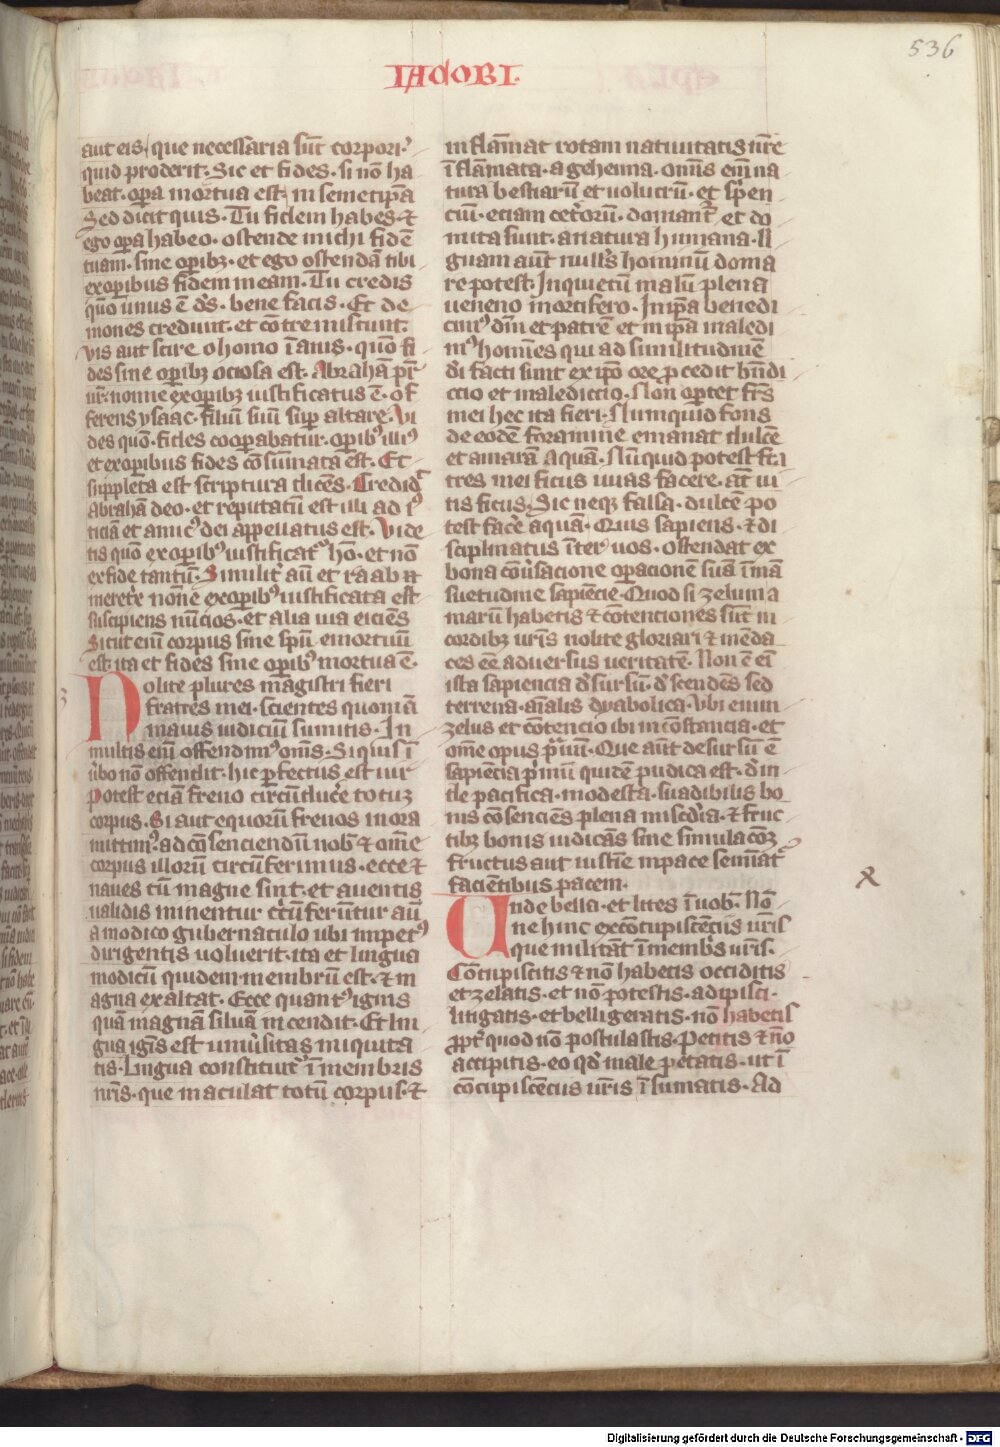 536
IACOBI.
aut eis que necessaria sūt corpori.
quid proderit. Sic et fides. si nō ha
beat. opa mortua est. in semetipā
Sed dicit quis. Tu fidem habes ⁊
ego opa habeo. ostende michi fidē
tuam. sine opibꝫ. et ego ostendā tibi
ex opibus fidem meam. Tu credis
quō unus ē d̄s. bene facis. Et de
mones credunt. et cōtremiscunt.
vis aut scire o homo īanis. quō fi
des sine opibꝫ ociosa est. Abrahā pr̄
ur̄. nonne ex opibꝫ iustificatus ē. of
ferens ysaac. filiū suū sup altare. Vi
des quō. fides coopabatur. opibꝰ illiꝰ
et ex opibus fides cōsūmata est. Et
suppleta est scriptura dicēs. Credid᷑
abrahā deo. et reputatū est illi ad iꝰ
ticiā et amicꝰ dei appellatus est. Vide
tis quō ex opibꝰ iustificat᷑ hō. et nō
ex fide tantū. Similit᷑ aū et raab a
meret᷑x nōne ex opibꝰ iustificata est
suscipiens nūcios. et alia uia eiciēs
Sicut enī corpus sine spū emortuū
est. ita et fides sine opibꝰ mortua ē.
Nolite plures magistri fieri
fratres mei. scientes quoniā
maius iudiciū sumitis. In
multis enī offendimꝰ om̄s. Si quis ī
ūbo nō offendit. hic pfectus est uir
Potest eciā freno circūduce totuꝫ
corpus. Si aut equorū frenos in ora
mittimꝰ. ad cōsenciendū nob̄ ⁊ om̄e
corpus illorū circūferimus. ecce ⁊
naues cū magne sint. et auentis
ualidis minentur c᷑cūferūtur aū
a modico gubernaculo ubi impetꝰ
dirigentis voluerit. ita et lingua
modicū quidem membrū est. ⁊ m
agna exaltat. Ecce quantꝰ ignis
quā magnā siluā incendit. Et lin
gua igīs est unīusitas iniquita
tis. Lingua constituit᷑ ī membris
nrīs. que maculat totū corpus. ⁊
inflāmat rotam natiuitatis nr̄e
īflāmata. a gehenna. Om̄is enī na
tura bestiarū et uolucrū. et spen
ciū. eciam cet᷑orū. domant᷑ et do
mita sunt. a natura humana. li
guam aūt nullꝰs hominū doma
re potest. Inquietū malū plena
ueneno mortifero. In ipa benedi
cimꝰ dm̄ et patrē et in ipa maledi
mꝰ homīes qui ad similitudinē
d̄i facti sunt ex ip̄o ore pcedit bn̄di
ccio et malediccio. Nōn oportet fr̄s
mei hec ita fieri. Numquid fons
de eodē foramine emanat dulcē
et amarā aquā. Nūquid potest fra
tres mei ficus uuas facere. aut ui
tis ficus. Sic neqꝫ salsa. dulcē po
test fac᷑e aquā. Quis sapiens. ⁊ di
sciplinatus īter uos. ostendat ex
bona cōūsacione opacionē suā īmā
suetudine sapiēcie. Quod si zelum a
marū habetis ⁊ cōtenciones sūt in
cordibꝫ ur̄is nolite gloriari ⁊ mēda
ces eē aduersus ueritatē. Non ē eī
ista sapiencia d̄sursū. d̄scendēs sed
terrena. aīalis dyabolica. Vbi enim
zelus et cōtencio ibi incōstancia. et
om̄e opus p᷑uū. Que aūt desursū ē
sapiēcia p᷑mū quidē pudica est. d̄in
de pacifica. modesta. suadibilis bo
nis cōsenciēs plena mīsc̄dia. ⁊ fruc
tibꝫ bonis iudicās sine simulacōeꝫ
fructus aut iusticie in pace semīat᷑
faciētibus pacem.
Unde bella. et lites ī uob̄. Nō
ne hinc ex cōcupiscēciis ur̄is
que militāt ī membrīs ur̄is.
Cōcupiscitis ⁊ nō habetis occiditis
et zelatis. et nō potestis. adipisci.
litigatis. et belligeratis. nō habetis
ppt᷑ quod nō postulastis. Petitis ⁊ nō
accipitis. eo qd̄ male petatis. ut ī
cōcupiscēciis ur̄is īsumatis. Ad
Digitalisierung gefördert durch die Deutsche Forschungsgemeinschaft - DFG